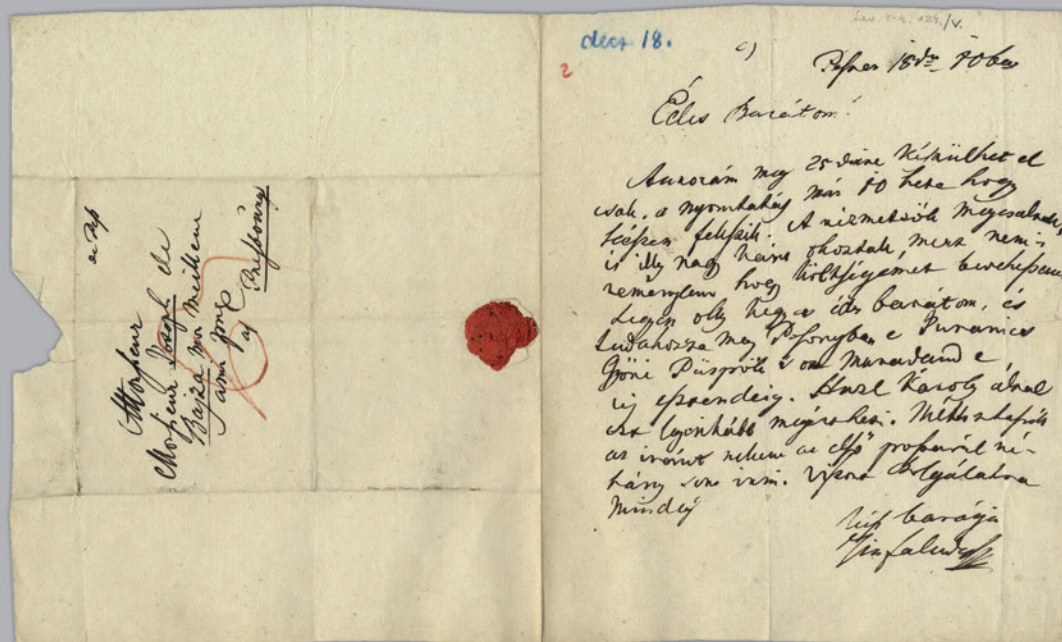 Monsieur
Monsieur Joseph de
Bajza mon meilleur
ami
à
Presbourg
decz 18.
2
c)
Pesten 18dn 10ber
Édes Barátom!
Aurorám még 25 dikére készülhet el
csak, a nyomtatás már 10 hete hogy
készen fekszik. A rézmetszők megcsalnak,
is illy nagy kárt okoztak, mert nem
reménylem hogy költségemet bevehessem
Legyen olly kegyes édes barátom, és
tudakozza meg Posonyban e
Győri Püspök Ú ott maradand e
új esztendeig. Károly által
ezt leginkább megértheti. Méltóztassék
az iránt nekem az első postával né-
hány sort írni. Viszont szolgálatra
mindég
hív barátja
Kisfaludy